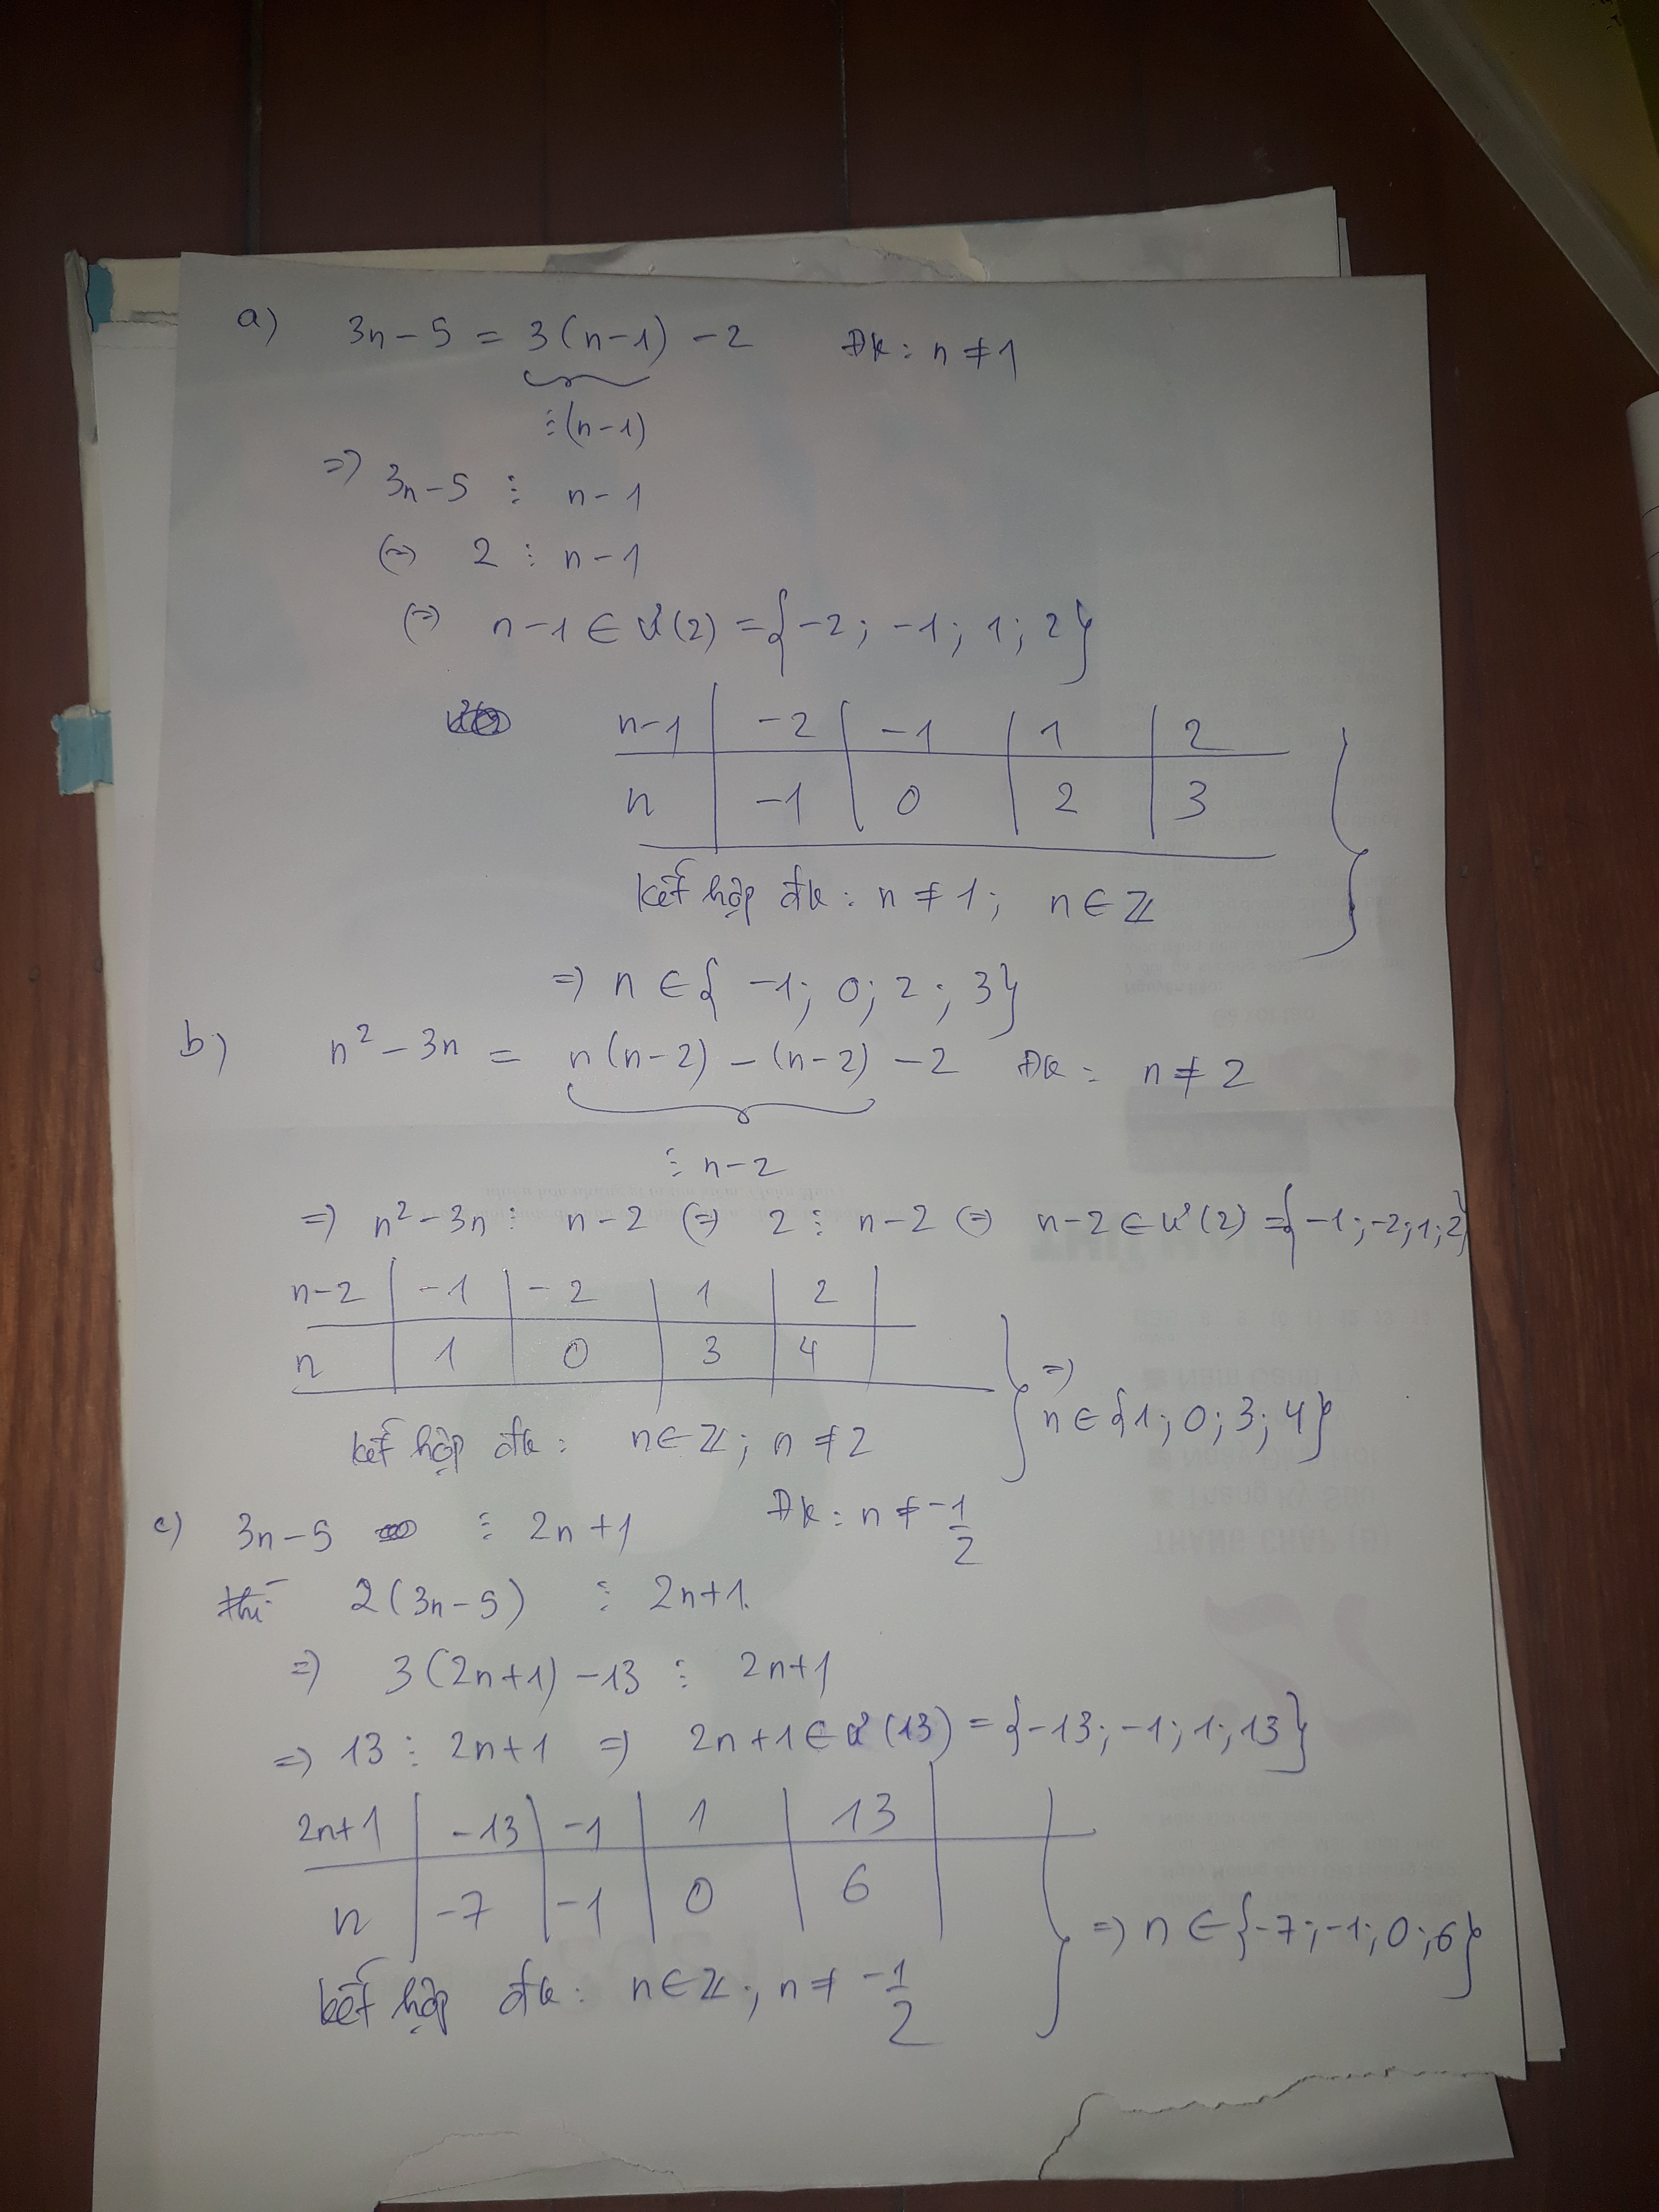 a) 3n-5 = 3(n-1) -2 Đk: n ≠ 1
⋮(n-1)
=> 3n-5 ⋮ n-1
(=) 2 ⋮ n-1
(=) n-1 ∈ Ư(2) = {-2; -1; 1; 2}
n-1 | -2 | -1 | 1 | 2
n | -1 | 0 | 2 | 3
kết hợp đk: n ≠ 1; n ∈ Z
=> n ∈ { -1; 0; 2; 3}
b) n² - 3n = n(n-2) - (n-2) - 2 Đk: n ≠ 2
⋮ n-2
=> n² - 3n ⋮ n-2 (=) 2 ⋮ n-2 (=) n-2 ∈ Ư(2) = {-1; -2; 1; 2}
n-2 | -1 | -2 | 1 | 2
n | 1 | 0 | 3 | 4
=> n ∈ {1; 0; 3; 4}
kết hợp đk: n ∈ Z; n ≠ 2
c) 3n-5 ⋮ 2n+1 Đk: n ≠ -1/2
thì 2(3n-5) ⋮ 2n+1.
=> 3(2n+1) -13 ⋮ 2n+1
=> 13 ⋮ 2n+1 => 2n+1 ∈ Ư(13) = {-13; -1; 1; 13}
2n+1 | -13 | -1 | 1 | 13
n | -7 | -1 | 0 | 6
=> n ∈ {-7; -1; 0; 6}
kết hợp đk: n ∈ Z; n ≠ -1/2